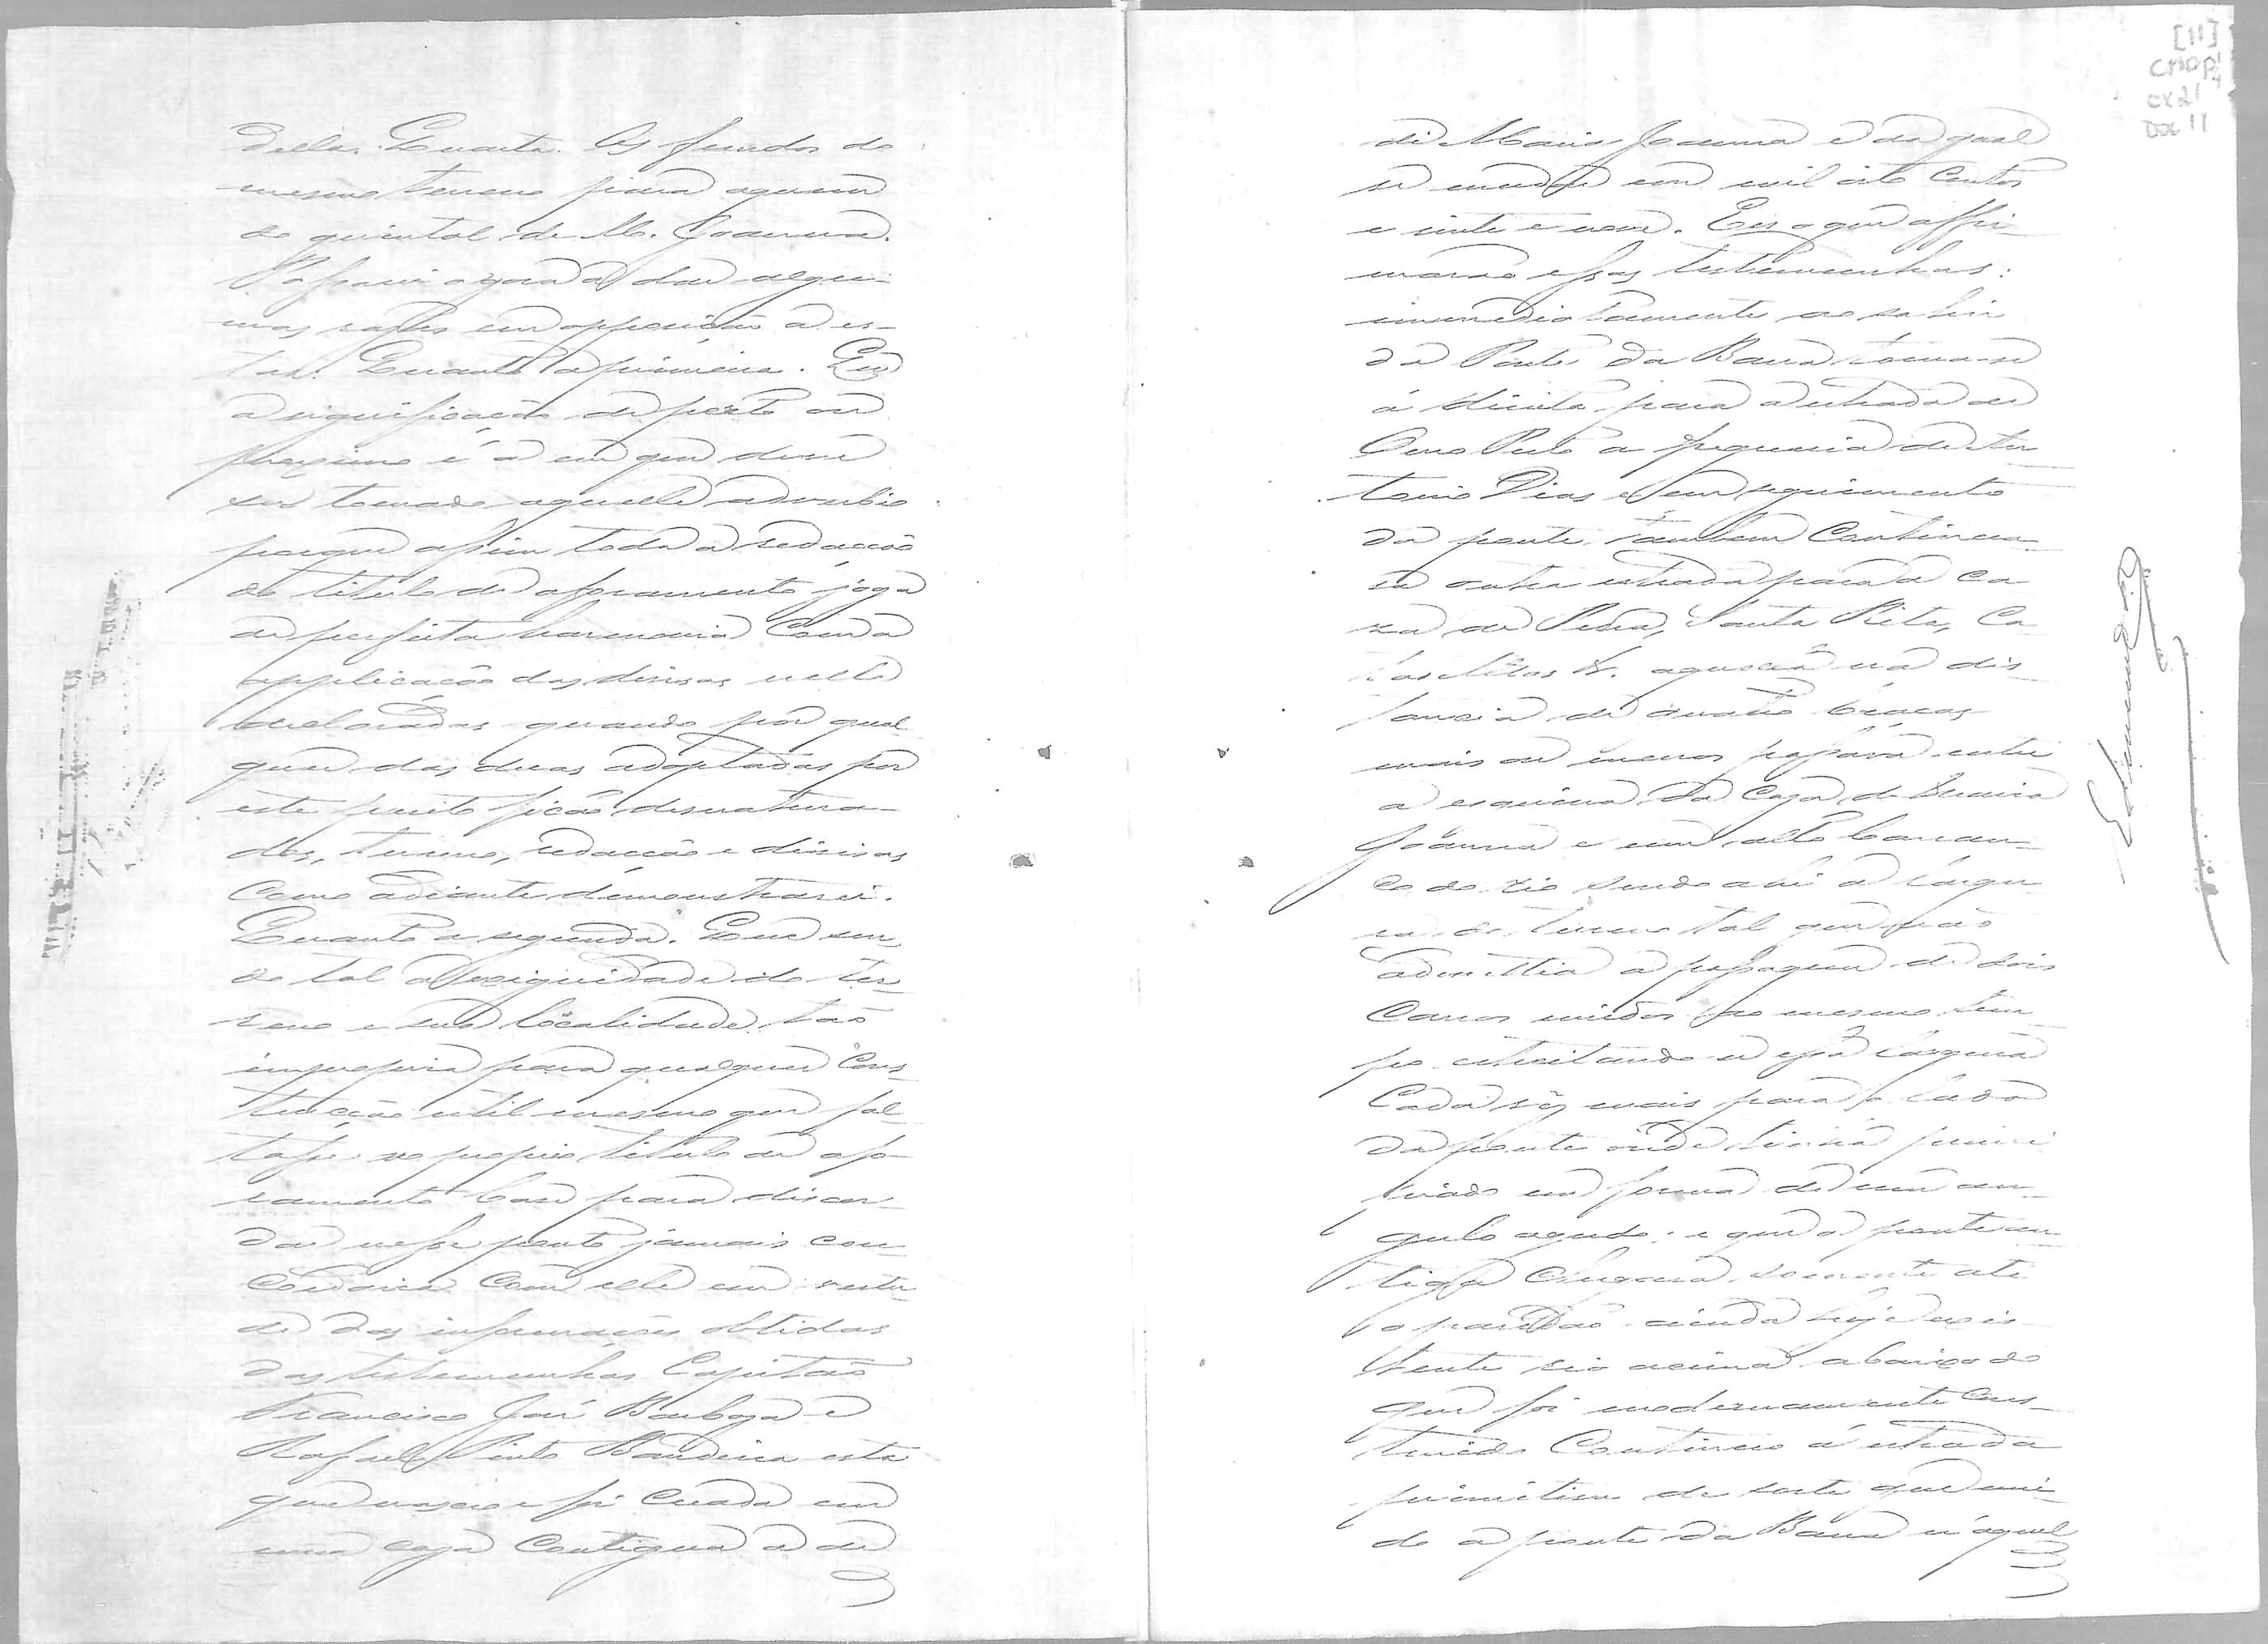 della. Quarta. Os fundos do
mesmo terreno ficou aquem
do quintal de M. Joanna.
Passarei agora a dar algu-
mas rasões em opposição a es-
tas. Quanto a primeira. Que
a significação de perto ou
proximo é a em que deve
ser tomado aquelle adverbio
porque assim toda a redacção
do titulo de aforamento joga
de perfeita harmonia com a
applicação das divisas nelle
declaradas quando por qual
quer das duas adoptadas por
este perito ficão desnatura-
dos, terreno, redacção e divisas
como adiante demonstrarei.
Quanto a segunda. Que sen-
do tal a exiguidade do ter-
reno e sua localidade tão
impropria para qualquer cons-
trucção util mesmo que fal-
tasse no proprio titulo de afo-
ramento base para discor-
dar nesse ponto jamais con-
cordaria com elle em virtu-
de das informações obtidas
das testemunhas Capitão
Francisco José Barboza e
Rafael Pinto Bandeira esta
que nasceo e foi creada em
uma caza contigua a de
[11]
CMOP
CX21
DOC 11
de Maria Joanna e da qual
se mudou em mil oito centos
e vinte e nove. Eis o que affir-
marão essas testemunhas:
immediatamente ao sahir
da Ponte da Barra tomava-se
á direita para a estrada de
Ouro Preto a freguesia de An-
tonio Dias e em seguimento
da ponte tambem continua-
va outra estrada para a Ca-
za de Pedra, Santa Rita, Ca-
tas Altas &. aquella na dis-
tancia de quatro braças
mais ou menos passava entre
a esquina da Caza de Maria
Joanna e um alto barran-
co do rio sendo ahi a largu-
ra do terreno tal que não
admittia a passagem de dois
carros unidos ao mesmo tem-
po estreitando-se essa largura
cada vez mais para o lado
da ponte onde
em forma de um an-
gulo agudo: e que a ponte an-
tiga chegava somente até
o paredão ainda hoje exis-
tente rio acima abaixo do
que foi modernamente cons-
truido contiguo á estrada
primitiva de sorte que
do a ponte da Barra n'aquel